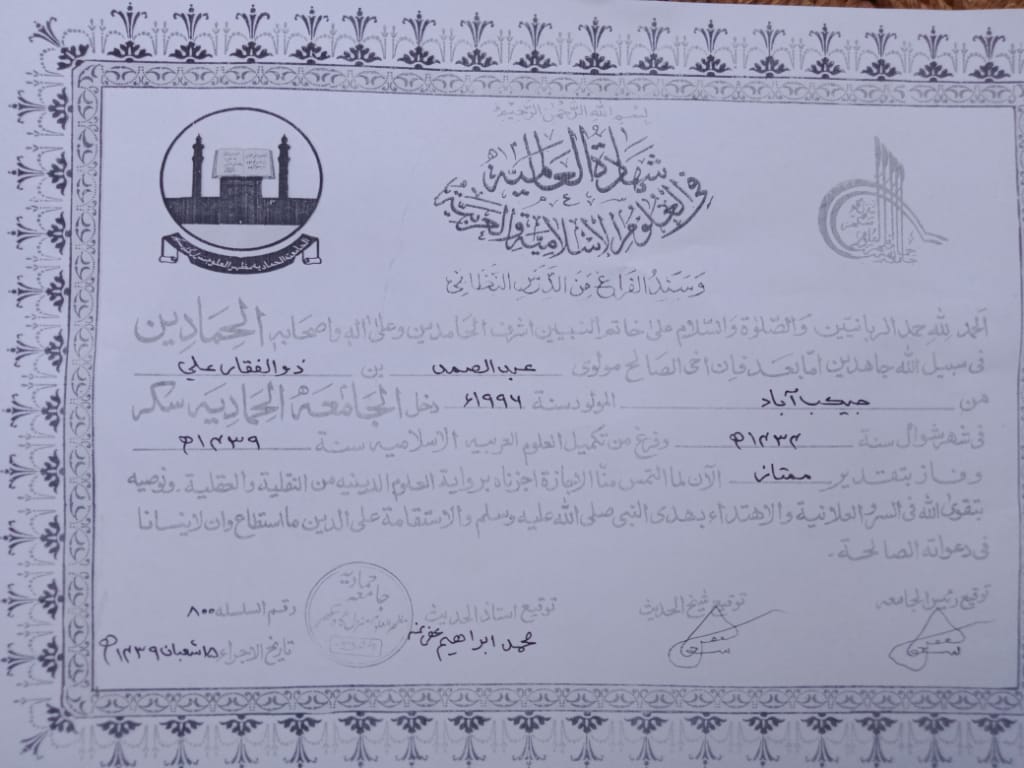 بسم الله الرحمن الرحيم
شهادة العالمية
في العلوم الإسلامية والعربية
وسند الفراغ من الدرس النظامي
الحمد لله حمد الربانيين والصلوة والسلام على خاتم النبيين اشرف الحامدين وعلى اله واصحابه الحمادين
في سبيل الله جاهدين اما بعد فان اخي الصالح مولوي عبد الصمد بن ذوالفقار علي
من جيكب آباد المولود سنة ١٩٩٦ء دخل الجامعة الحمادية سكر
في شهر شوال سنة ١٤٣٤ھ وفرغ من تكميل العلوم العربيه الاسلاميه سنة ١٤٣٩ھ
وفاز بتقدير ممتاز الآن لما التمس منا الاجازة اجزناه برواية العلوم الدينيه من النقلية والعقلية. ونوصيه
بتقوى الله في السر والعلانية والاهتداء بهدى النبي صلى الله عليه وسلم والاستقامة على الدين ما استطاع وان لا ينسانا
في دعواته الصالحة.
توقيع رئيس الجامعه
توقيع شيخ الحديث
توقيع استاذ الحديث
محمد ابراهيم عفی عنہ
حمادية
جامعه
رقم السلسله ٨٠٠
تاريخ الاجراء ١٥ شعبان ١٤٣٩ھ